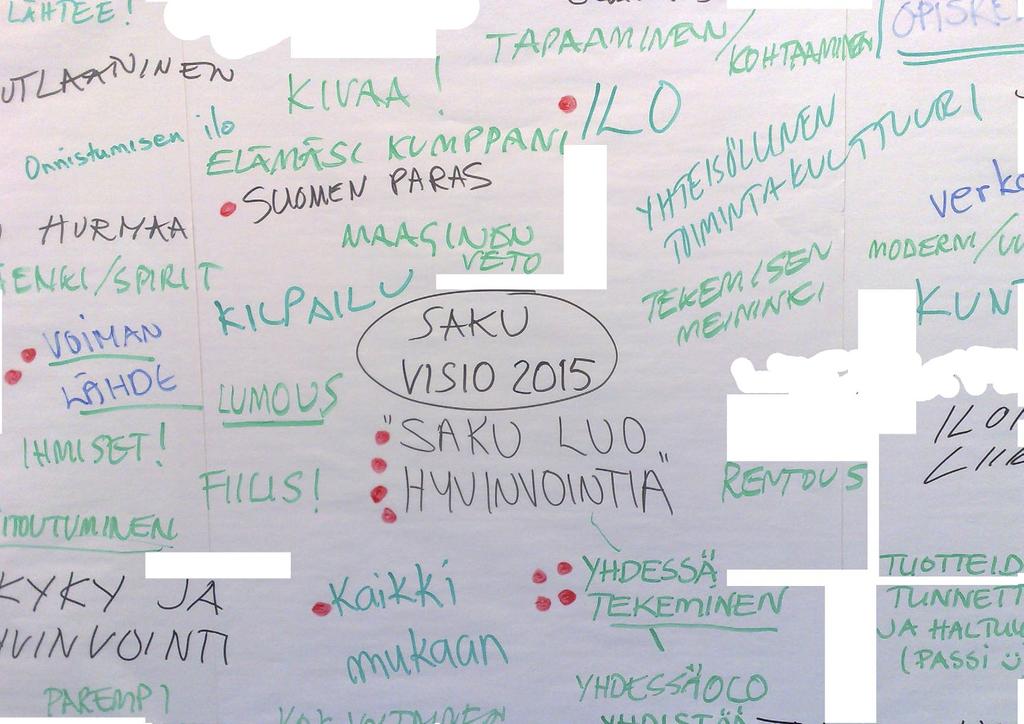 LÄHTEE!
TAPAAMINEN/
KOHTAAMINEN/
UTLAANINEN
KIVAA!
Onnistumisen ilo
ILO
ELÄMÄSI KUMPPANI
SUOMEN PARAS
YHTEISÖLLINEN
TOIMINTAKULTTUURI
HURMAA
MAAGINEN
VETO
TEKEMISEN
MEININKI
MODERNI/
ENKI/SPIRIT
KILPAILU
VOIMAN
LÄHDE
SAKU
VISIO 2015
LUMOUS
IHMISET!
"SAKU LUO
HYVINVOINTIA"
FIILIS!
RENTOUS
ITOUTUMINEN
KYKY JA
HYVINVOINTI
PAREMPI
Kaikki
mukaan
YHDESSÄ
TEKEMINEN
YHDESSÄOLO
YHDISTÄÄ
TUOTTEID
TUNNETT
JA HALTUU
(PASSI ☺